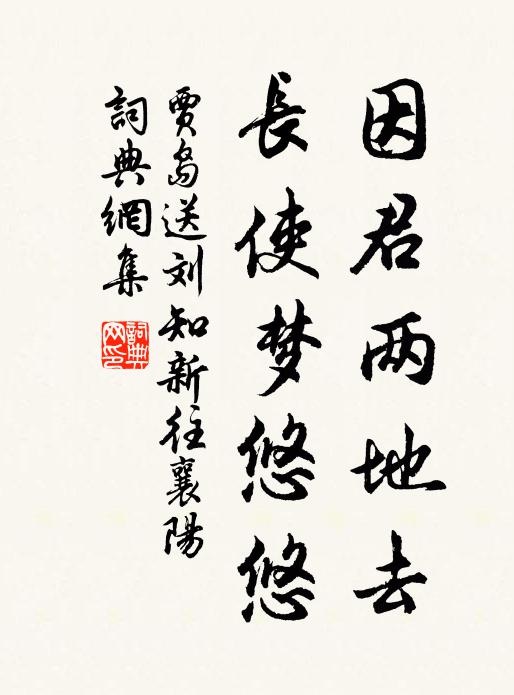 因君两地去
長使梦悠悠
賈岛送刘知新往襄陽
詞典網集
詞典网印